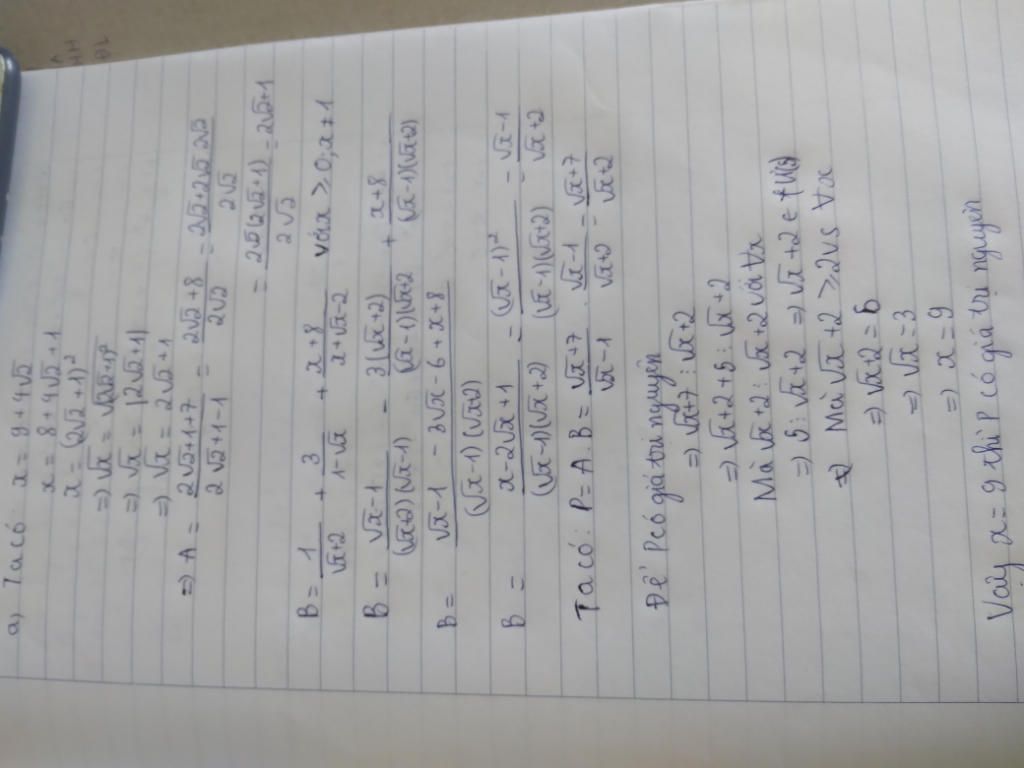 a) Ta có: x = 9 + 4√2
x = 8 + 4√2 + 1
x = (2√2 + 1)²
⇒ √x = √(2√2+1)²
⇒ √x = |2√2 + 1|
⇒ √x = 2√2 + 1
⇒ A = (2√2 + 1 + 7)/(2√2 + 1 - 1) = (2√2 + 8)/(2√2) = (2√2 + 2√2.2√2)/(2√2)
= 2√2(2√2 + 1)/(2√2) = 2√2 + 1
B = 1/(√x+2) + 3/(1-√x) + (x+8)/(x+√x-2) với x ≥ 0, x ≠ 1
B = (√x-1)/((√x+2)(√x-1)) - 3(√x+2)/((√x-1)(√x+2) + (x+8)/((√x-1)(√x+2))
B = (√x-1 - 3√x - 6 + x + 8)/((√x-1)(√x+2))
B = (x-2√x+1)/((√x-1)(√x+2)) = (√x-1)²/((√x-1)(√x+2)) = (√x-1)/(√x+2)
Ta có: P = A.B = (√x+7)/(√x-1) . (√x-1)/(√x+2) = (√x+7)/(√x+2)
Để P có giá trị nguyên
⇒ √x+7 ⋮ √x+2
⇒ √x+2+5 ⋮ √x+2
Mà √x+2 ⋮ √x+2 với ∀x
⇒ 5 ⋮ √x+2 ⇒ √x+2 ∈ Ư(5)
Mà √x+2 ≥ 2 ∀x
⇒ √x+2 = 5
⇒ √x = 3
⇒ x = 9
Vậy x = 9 thì P có giá trị nguyên